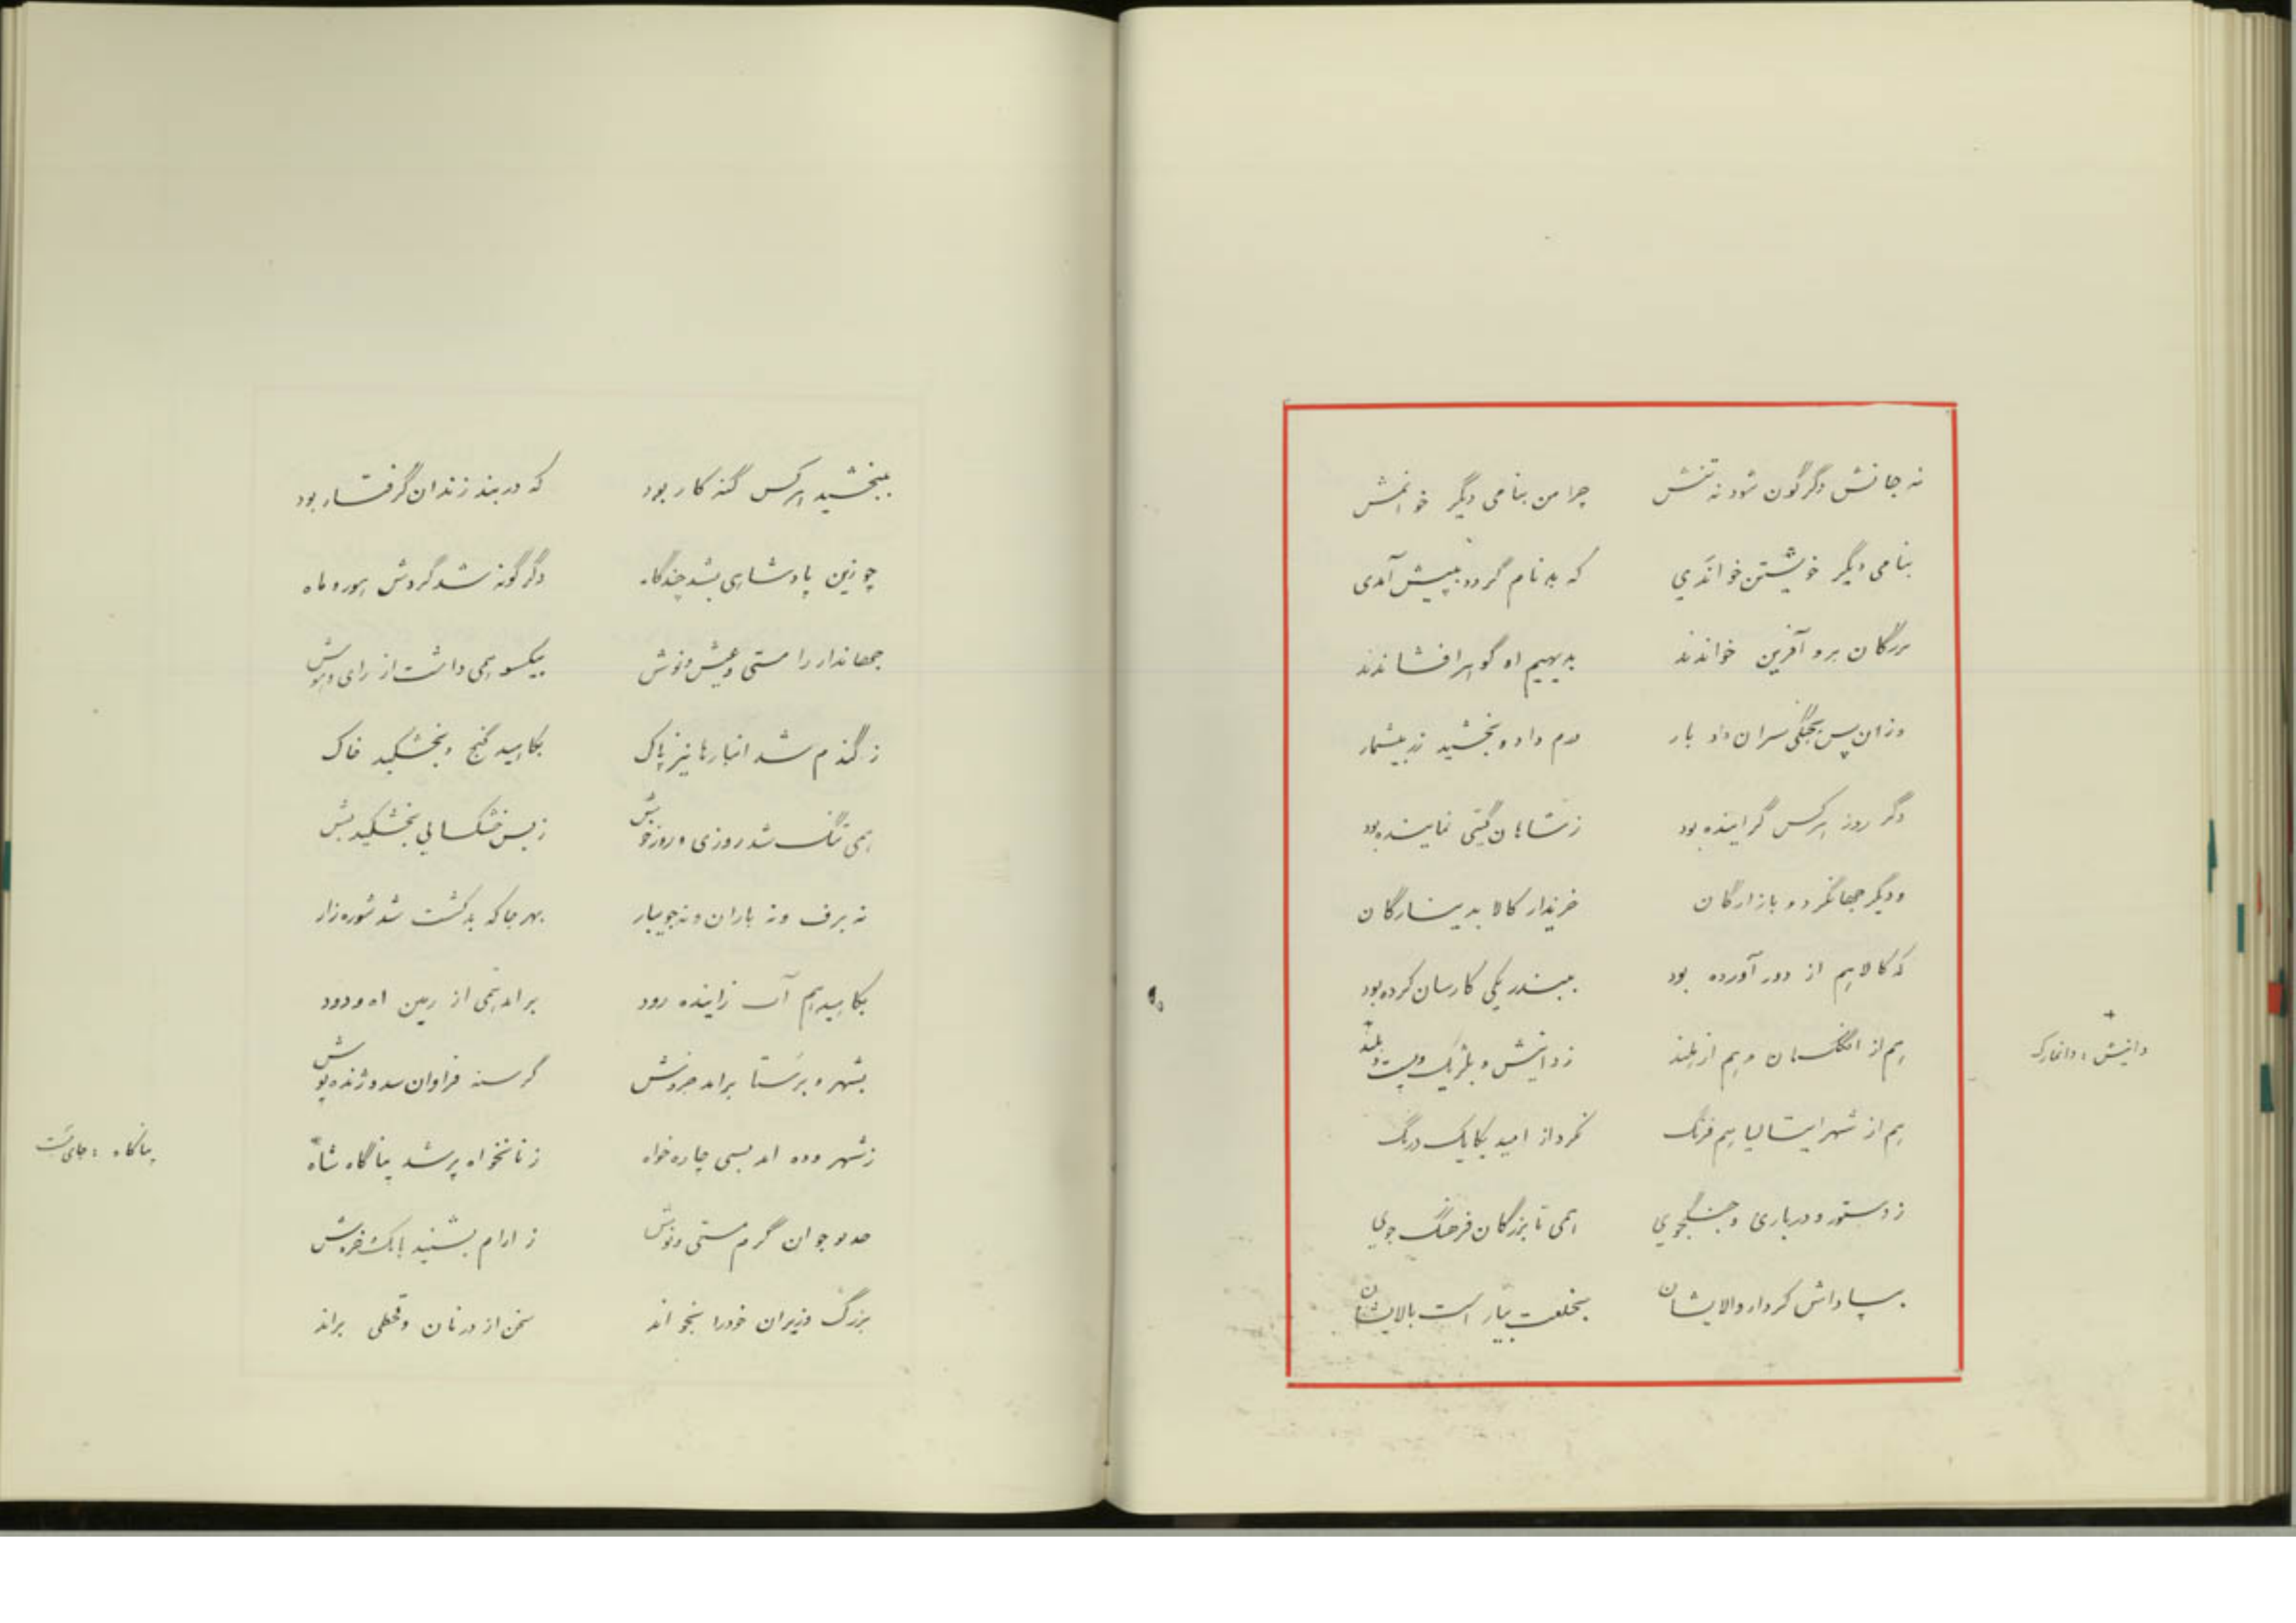 نه جانش دگرگون شود نه تنش چرا من بنامی دیگر خوانمش
بنامی دیگر خویشتن خواندی که بد نام گردد بپیش آمدی
بزرگان برو آفرین خواندند بدیهیم او گوهر افشاندند
وزان پس بجنگی سران داد بار درم داد و بخشید زر بیشمار
دگر روز هرکس گراینده بود ز شاهان گیتی نماینده بود
و دیگر جهانگرد و بازارگان خریدار کالا بدینارگان
که کالا هم از دور آورده بود ببندر یکی کارسان کرده بود
هم از انگلستان و هم از هلند ز دانیش و بلژیک و پست و بلند
هم از شهر ایتالیا هم فرنگ نکرد از امید یکایک درنگ
ز دستور و درباری و جنگجوی همی تا بزرگان فرهنگ جوی
بپاداش کردار والایشان بخلعت بیاراست بالایشان
دانیش : دانمارک
ببخشید هرکس گنه کار بود که در بند زندان گرفتار بود
چو زین پادشاهی بشد چندگاه دگرگونه شد گردش هور و ماه
جهاندار را مستی و عیش و نوش بیکسو همی داشت از رای و هوش
ز گندم شد انبارها نیز پاک بکاهید گنج و بخشکید خاک
همی تنگ شد روزی و روز خوش ز بس خشکسالی بخشکید بش
نه برف و نه باران و نه جویبار بهر جا که بد کشت شد شوره زار
بکاهید هم آب زاینده رود برامد همی از زمین آه و دود
بشهر و برستا برامد خروش گرسنه فراوان شد و ژنده پوش
ز شهر و ده امد بسی چاره خواه ز نانخواه پر شد پناگاه شاه
پناگاه : جای بست
خدیو جوان گرم مستی و نوش ز ارام بشنید بانگ خروش
بزرگ وزیران خود را بخواند سخن از در نان و قحطی براند